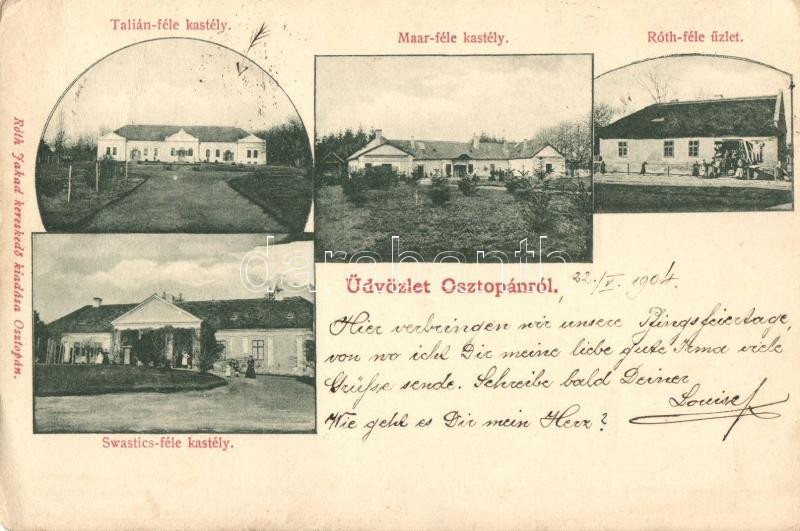 Talián-féle kastély.
Maar-féle kastély.
Róth-féle űzlet.
Róth Jakad kereskedő kiadása Osztopán.
darabanth
Üdvözlet Osztopánról,
22./V. 1904.
Hier verbringen wir unsere Pfingsfeiertage,
von wo ich Dir meine liebe gute Irma viele
Grüsse sende. Schreibe bald Deiner
Louise
Wie geht es Dir mein Herz?
Swastics-féle kastély.